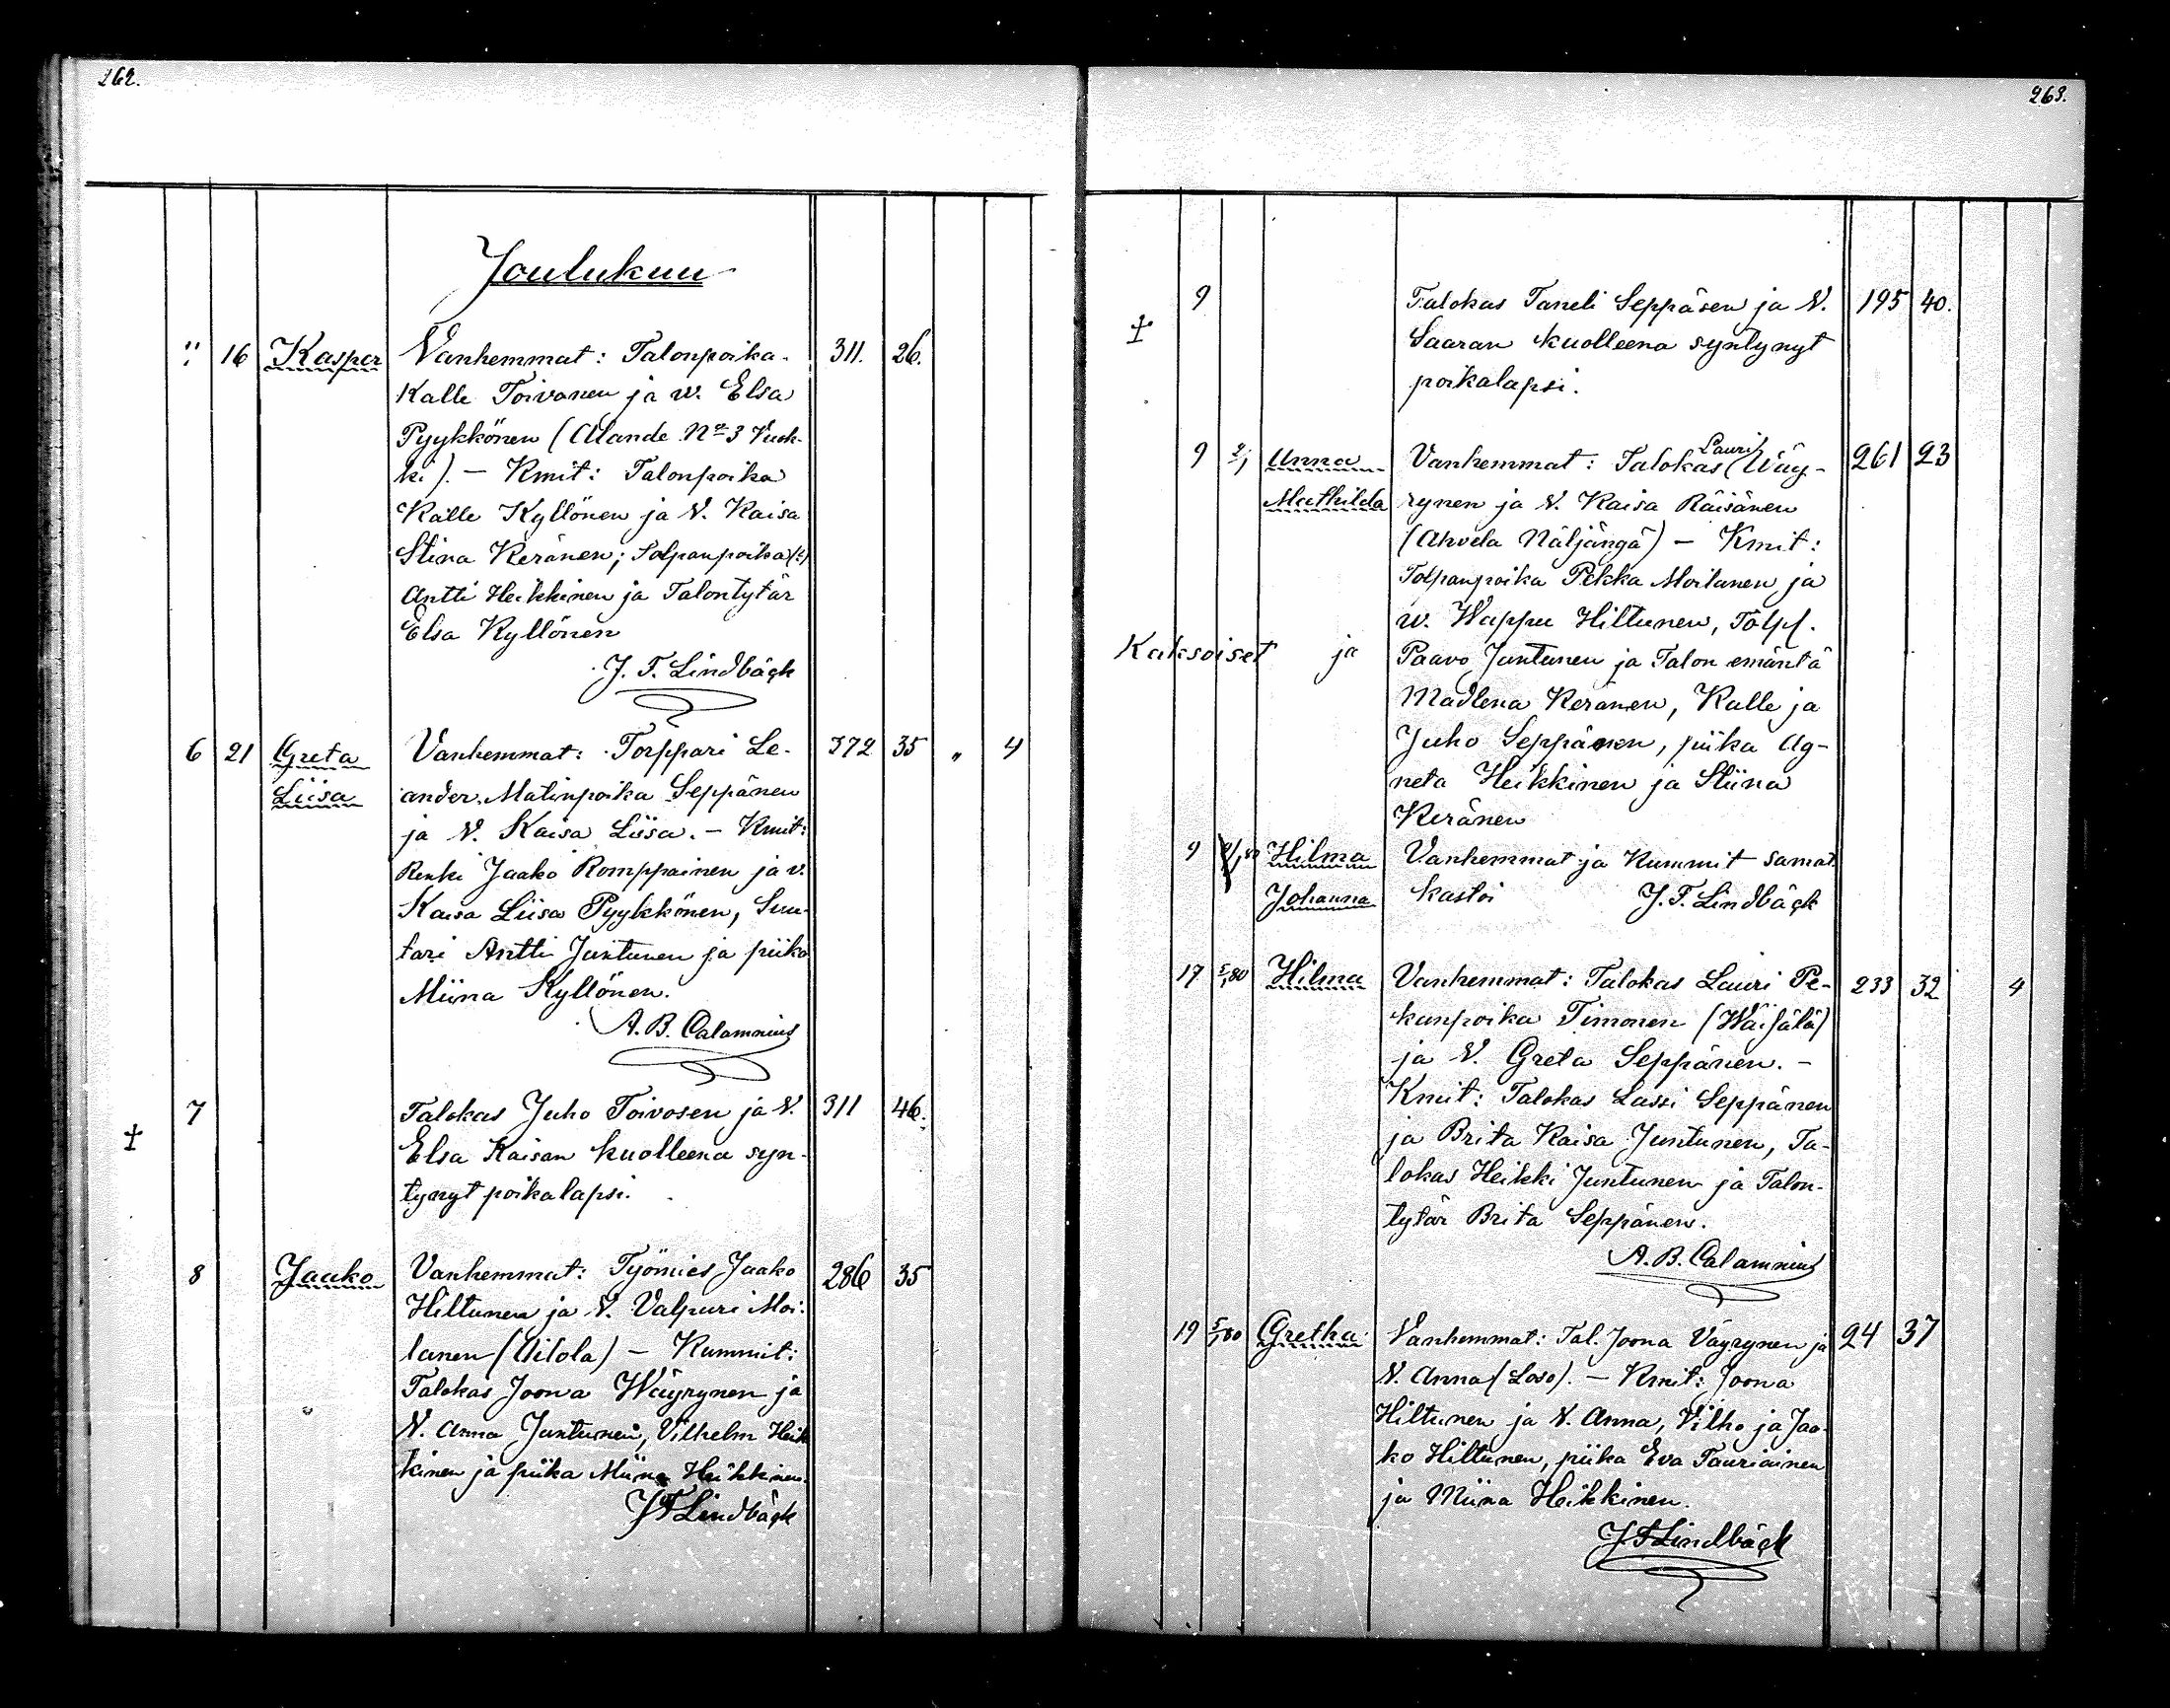 262.
Joulukuu
" 16 Kasper Vanhemmat: Talonpoika 311. 26.
Kalle Toivanen ja w. Elsa
Pyykkönen (Alande No 3 Vuok-
ki). — Kmit: Talonpoika
Kalle Kyllönen ja V. Kaisa
Stina Keränen; Tolpanpoika
Antti Heikkinen ja Talontytär
Elsa Kyllönen
J. F. Lindbäck
6 21 Greta Vanhemmat: Torppari Le- 372 35 " 4
Liisa ander Matinpoika Seppänen
ja V. Kaisa Liisa. — Kmit:
Renki Jaako Romppainen ja v.
Kaisa Liisa Pyykkönen, Suu-
tari Antti Juntunen ja piika
Miina Kyllönen.
A. B. Calamnius
7 Talokas Juho Toivosen ja V. 311 46.
† Elsa Kaisan kuolleena syn-
tynyt poikalapsi.
8 Jaako Vanhemmat: Työmies Jaako 286 35
Hiltunen ja V. Valpuri Moi-
lanen (Uitola) — Kummit:
Talokas Joona Wäyrynen ja
V. Anna Juntunen, Vilhelm Heik
kinen ja piika Miina Heikkinen.
J F Lindbäck
263.
9 Talokas Taneli Seppäsen ja V. 195 40.
† Saaran kuolleena syntynyt
poikalapsi.
Lauri
9 Anna Vanhemmat: Talokas (Wäy- 261 23
Mathilda rynen ja V. Kaisa Räisänen
(Ahvela Näljängä) — Kmit:
Tolpanpoika Pekka Moilanen ja
w. Wappu Hiltunen, Tolp.
Kaksoiset ja Paavo Juntunen ja Talon emäntä
Madlena Keränen, Kalle ja
Juho Seppänen, piika Ag-
neta Heikkinen ja Stiina
Keränen
9 Hilma Vanhemmat ja Kummit samat
Johanna kastoi J. F. Lindbäck
17 5/1 80 Hilma Vanhemmat: Talokas Lauri Pe- 233 32 4
kanpoika Timonen (Wäisälä)
ja V. Greta Seppänen. —
Kmit: Talokas Lassi Seppänen
ja Brita Kaisa Juntunen, Ta-
lokas Heikki Juntunen ja Talon-
tytär Brita Seppänen.
A. B. Calamnius
19 5/1 80 Gretha Vanhemmat: Tal. Joona Väyrynen ja 24 37
V. Anna (Loso). — Kmit: Joona
Hiltunen ja V. Anna, Vilho ja Jaa-
ko Hiltunen, piika Eva Tauriainen
ja Miina Heikkinen.
J F Lindbäck